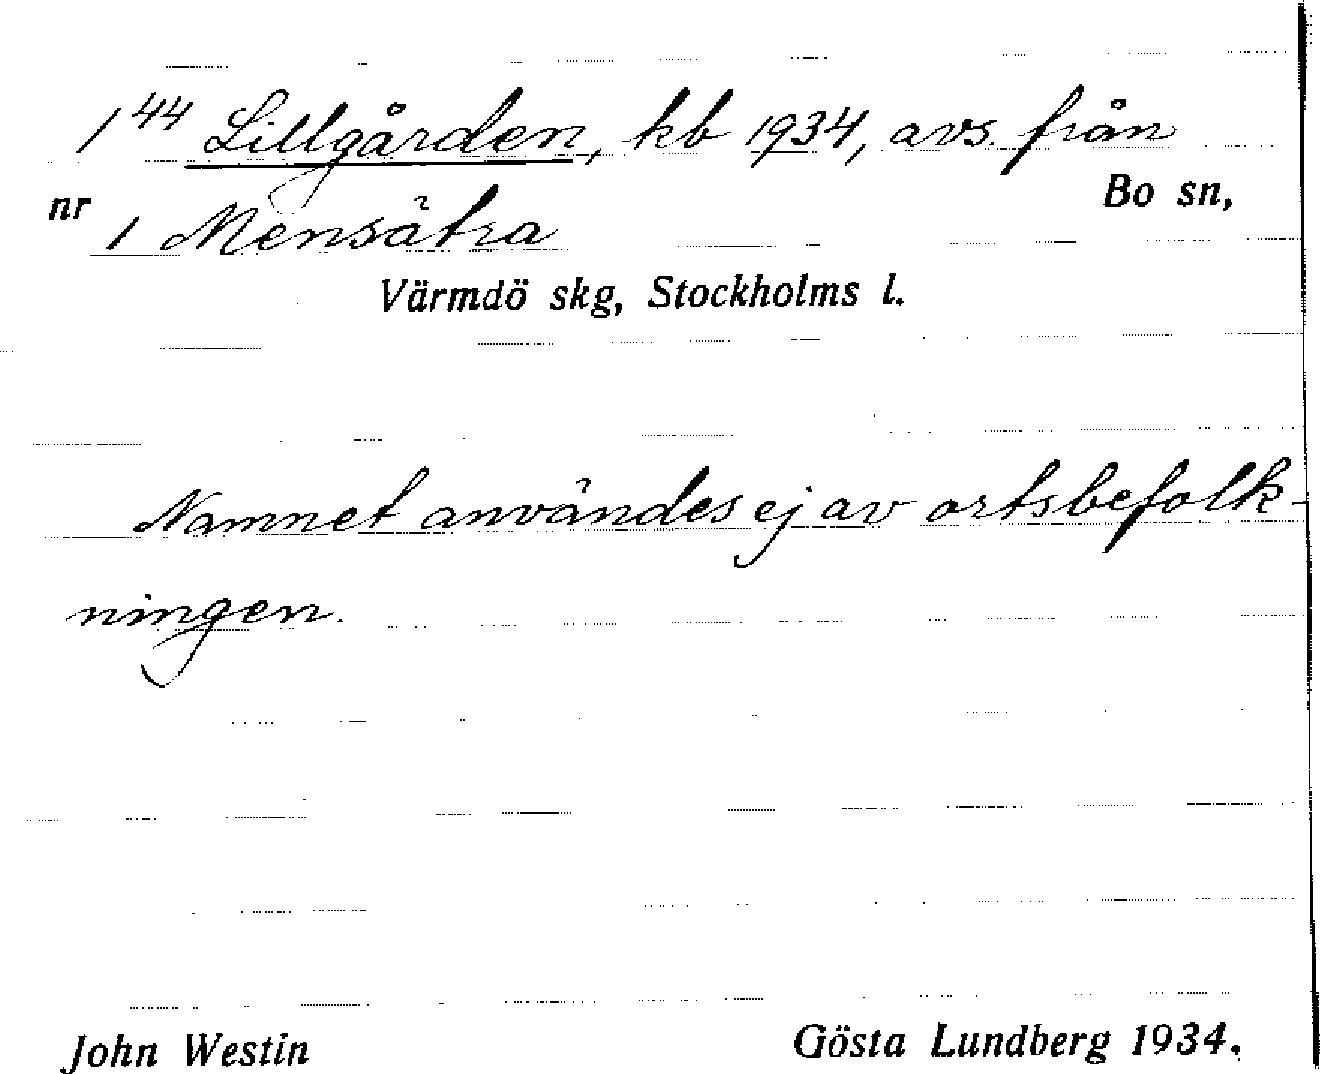 1⁴⁴ Lillgården, kb 1934, avs. från
Bo sn,
nr 1 Mensätra
Värmdö skg, Stockholms l.
Namnet användes ej av ortsbefolk-
ningen.
John Westin Gösta Lundberg 1934.